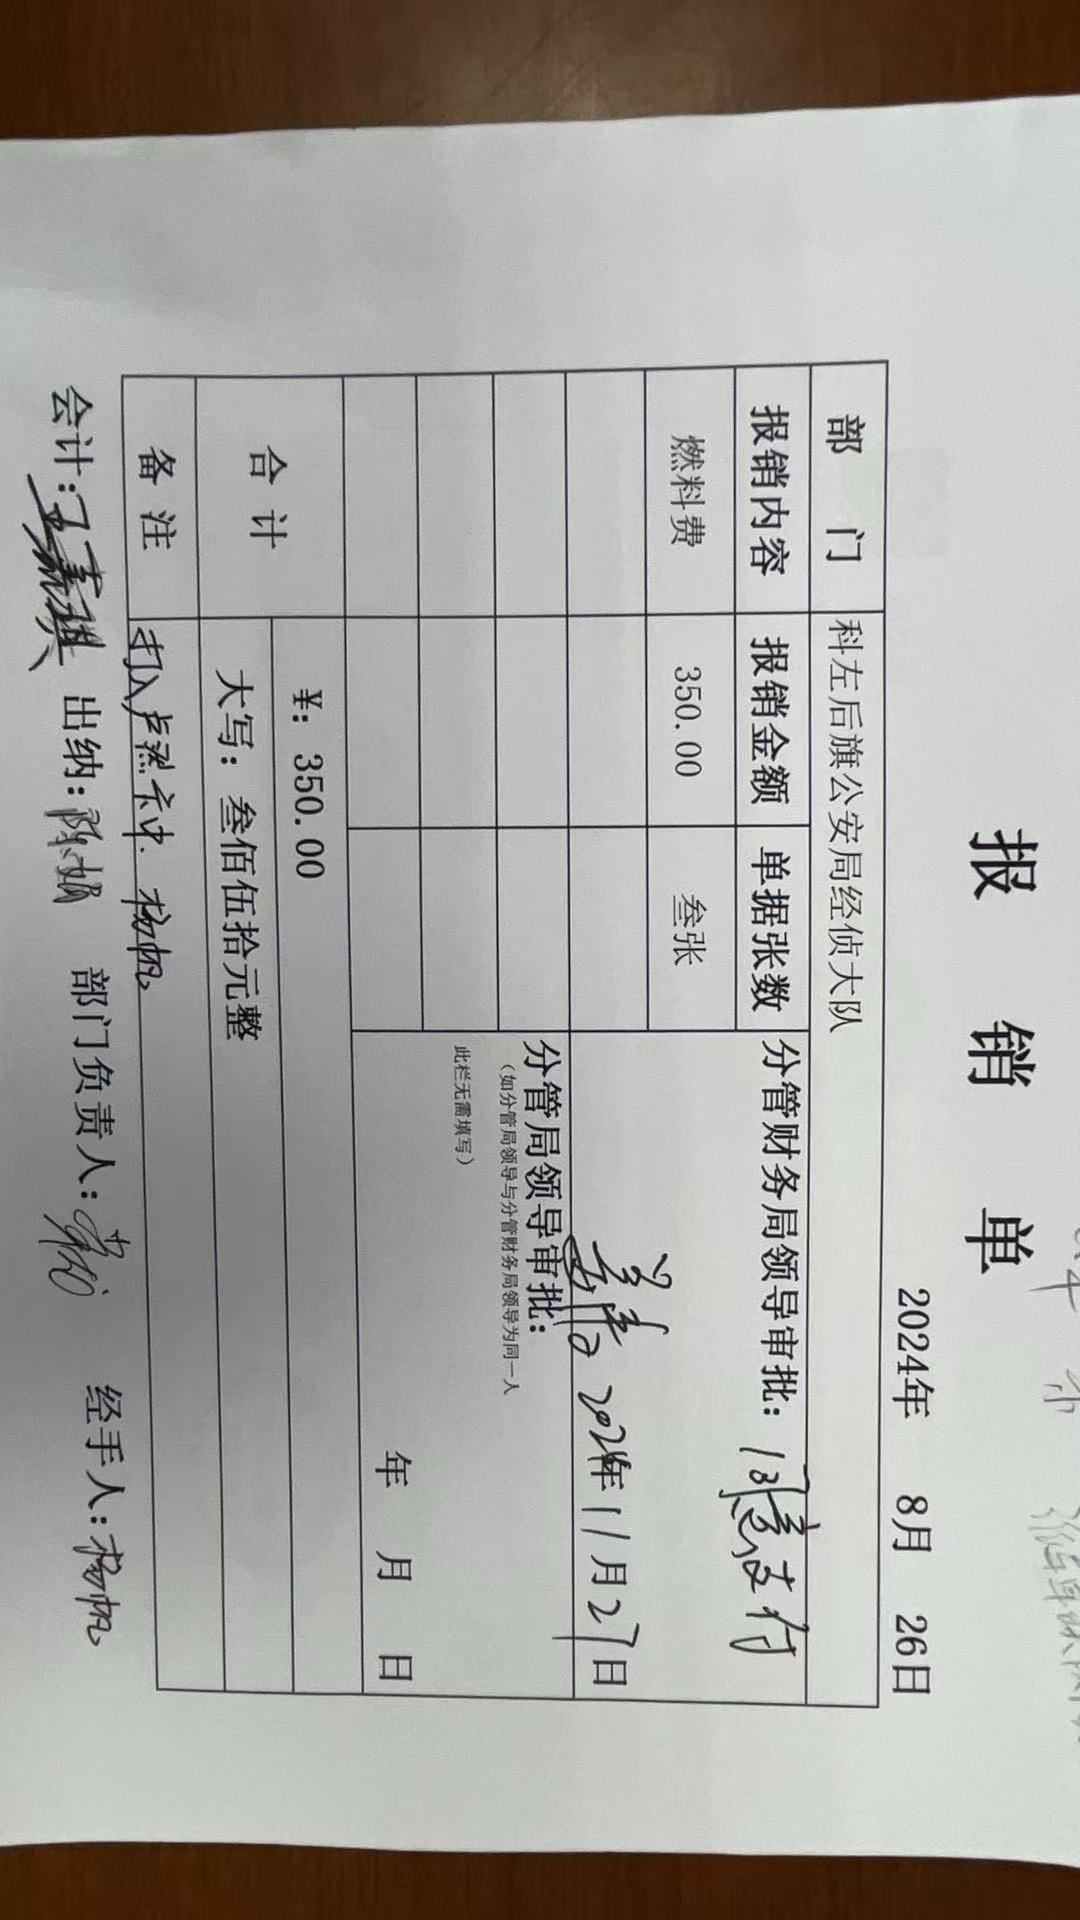 报 销 单
2024年 8月 26日
部 门 科左后旗公安局经侦大队
报销内容 报销金额 单据张数 分管财务局领导审批：同意支付
燃料费 350.00 叁张
2024年11月27日
分管局领导审批：
（如分管局领导与分管财务局领导为同一人
此栏无需填写）
年 月 日
合 计 ¥：350.00
大写：叁佰伍拾元整
备 注 打入卢烈卡中. 杨帆
会计：王嘉琪 出纳：陈娟 部门负责人： 经手人：杨帆